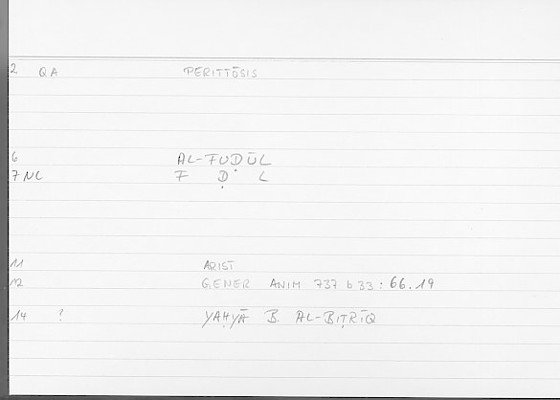 2 QA PERITTŌSIS
6 AL-FUḌŪL
7 NL F Ḍ L
11 ARIST
12 GENER ANIM 737 b 33 : 66.19
14 ? YAḤYĀ B AL-BIṬRĪQ